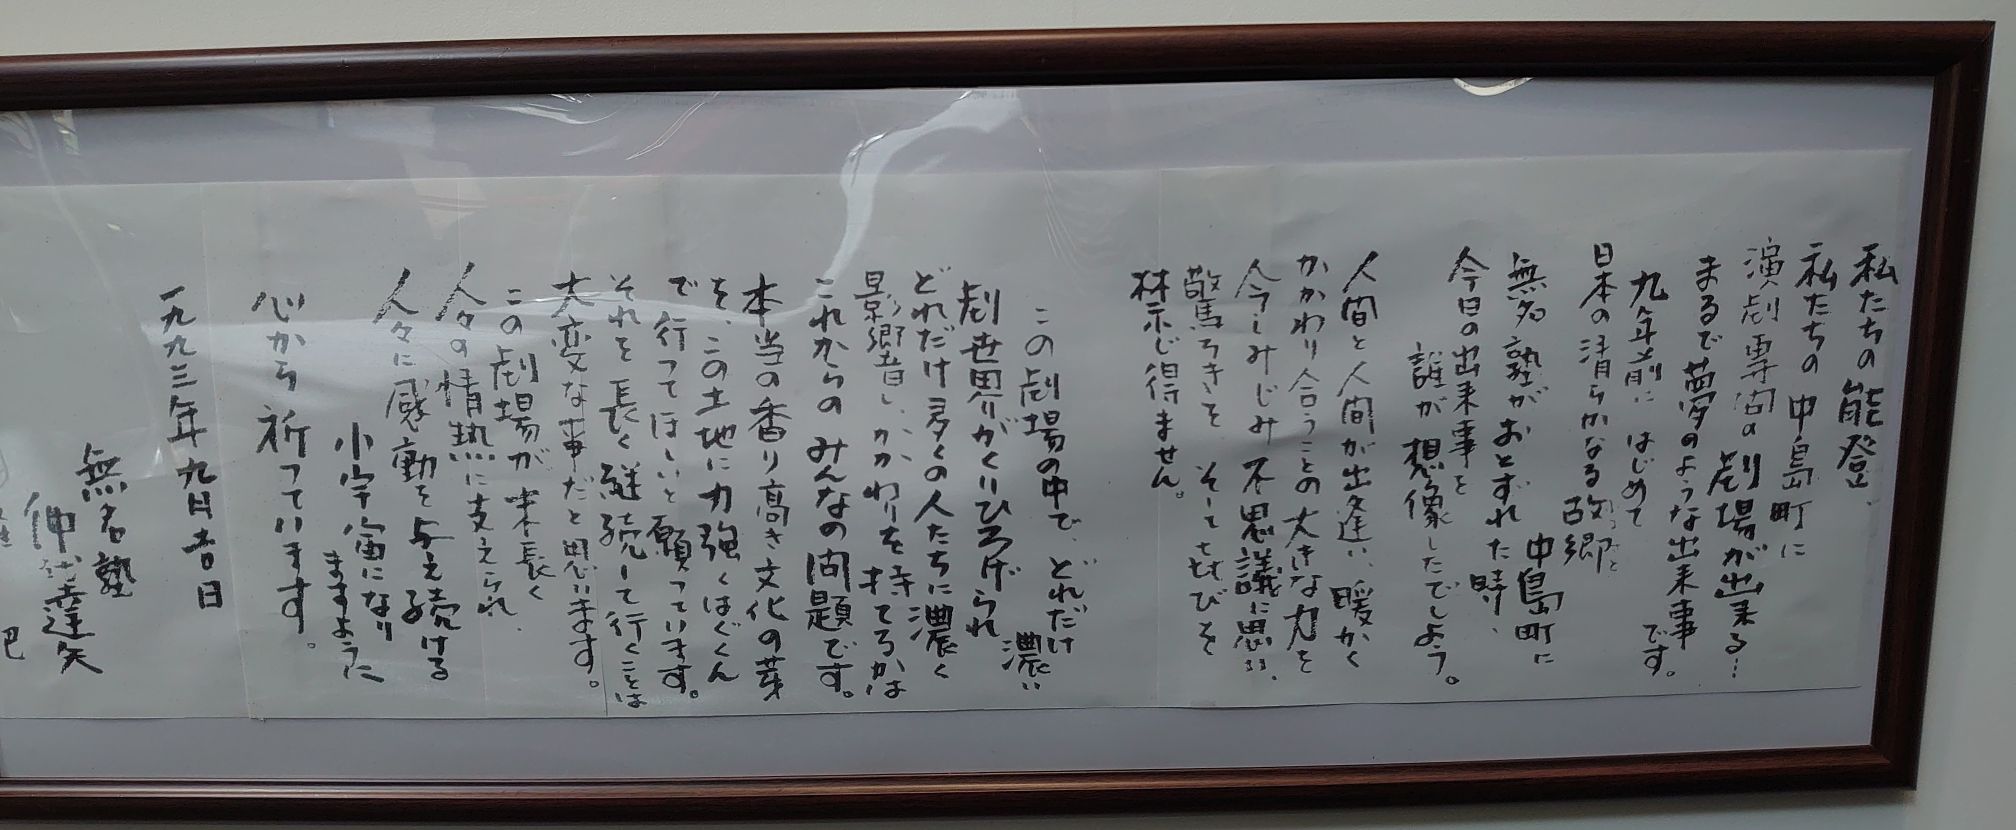 私たちの能登、
私たちの中島町に
演劇専門の劇場が出来る…
まるで夢のような出来事
です。
九年前に はじめて
日本の清らかなる故郷
無名塾がおとずれた時、
中島町に
今日の出来事を
誰が想像したでしよう。
人間と人間が出逢い、暖かく
かかわり合うことの大きな力を
今しみじみ不思議に思い、
驚ろきを そしてよろこびを
禁じ得ません。
この劇場の中で、どれだけ
濃い
劇世界がくりひろげられ
どれだけ多くの人たちに濃く
影響し、かかわりを持てるかは
これからのみんなの問題です。
本当の香り高き文化の芽
を、この土地に力強くはぐくん
で行ってほしいと願っています。
それを長く継続して行くことは
大変な事だと思います。
この劇場が末長く
人々の情熱に支えられ、
人々に感動を与え続ける
小宇宙になり
ますように
心から祈っています。
一九九三年九月吉日
無名塾
仲代達矢
巴